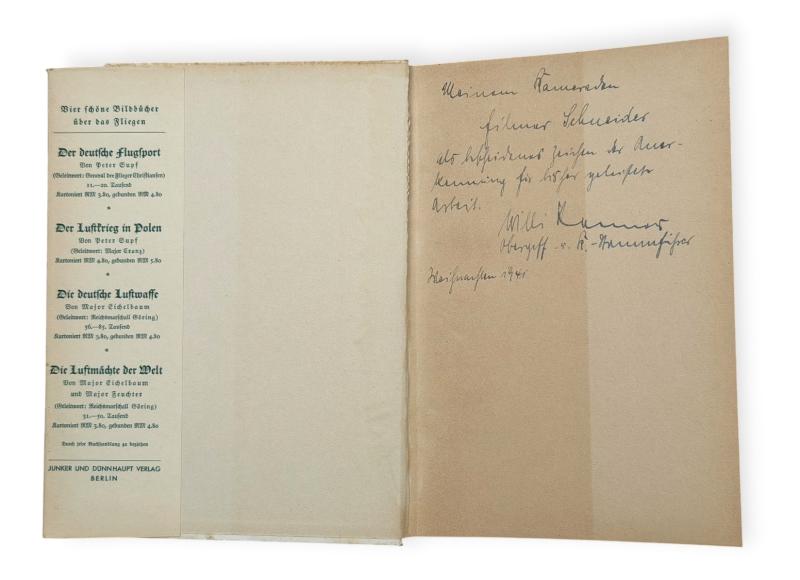 Vier schöne Bildbücher
über das Fliegen
Der deutsche Flugsport
Von Peter Supf
(Geleitwort: General der Flieger Christiansen)
11.—20. Tausend
Kartoniert RM 3.80, gebunden RM 4.80
*
Der Luftkrieg in Polen
Von Peter Supf
(Geleitwort: Major Cranz)
Kartoniert RM 4.80, gebunden RM 5.80
*
Die deutsche Luftwaffe
Von Major Eichelbaum
(Geleitwort: Reichsmarschall Göring)
56.—85. Tausend
Kartoniert RM 3.80, gebunden RM 4.80
*
Die Luftmächte der Welt
Von Major Eichelbaum
und Major Feuchter
(Geleitwort: Reichsmarschall Göring)
31.—50. Tausend
Kartoniert RM 3.80, gebunden RM 4.80
Durch jede Buchhandlung zu beziehen
JUNKER UND DÜNNHAUPT VERLAG
BERLIN
Meinem Kameraden
Hilmar Schneider
als bescheidenes Zeichen der Aner-
kennung für bisher geleistete
Arbeit.
Willi
Weihnachten 1941